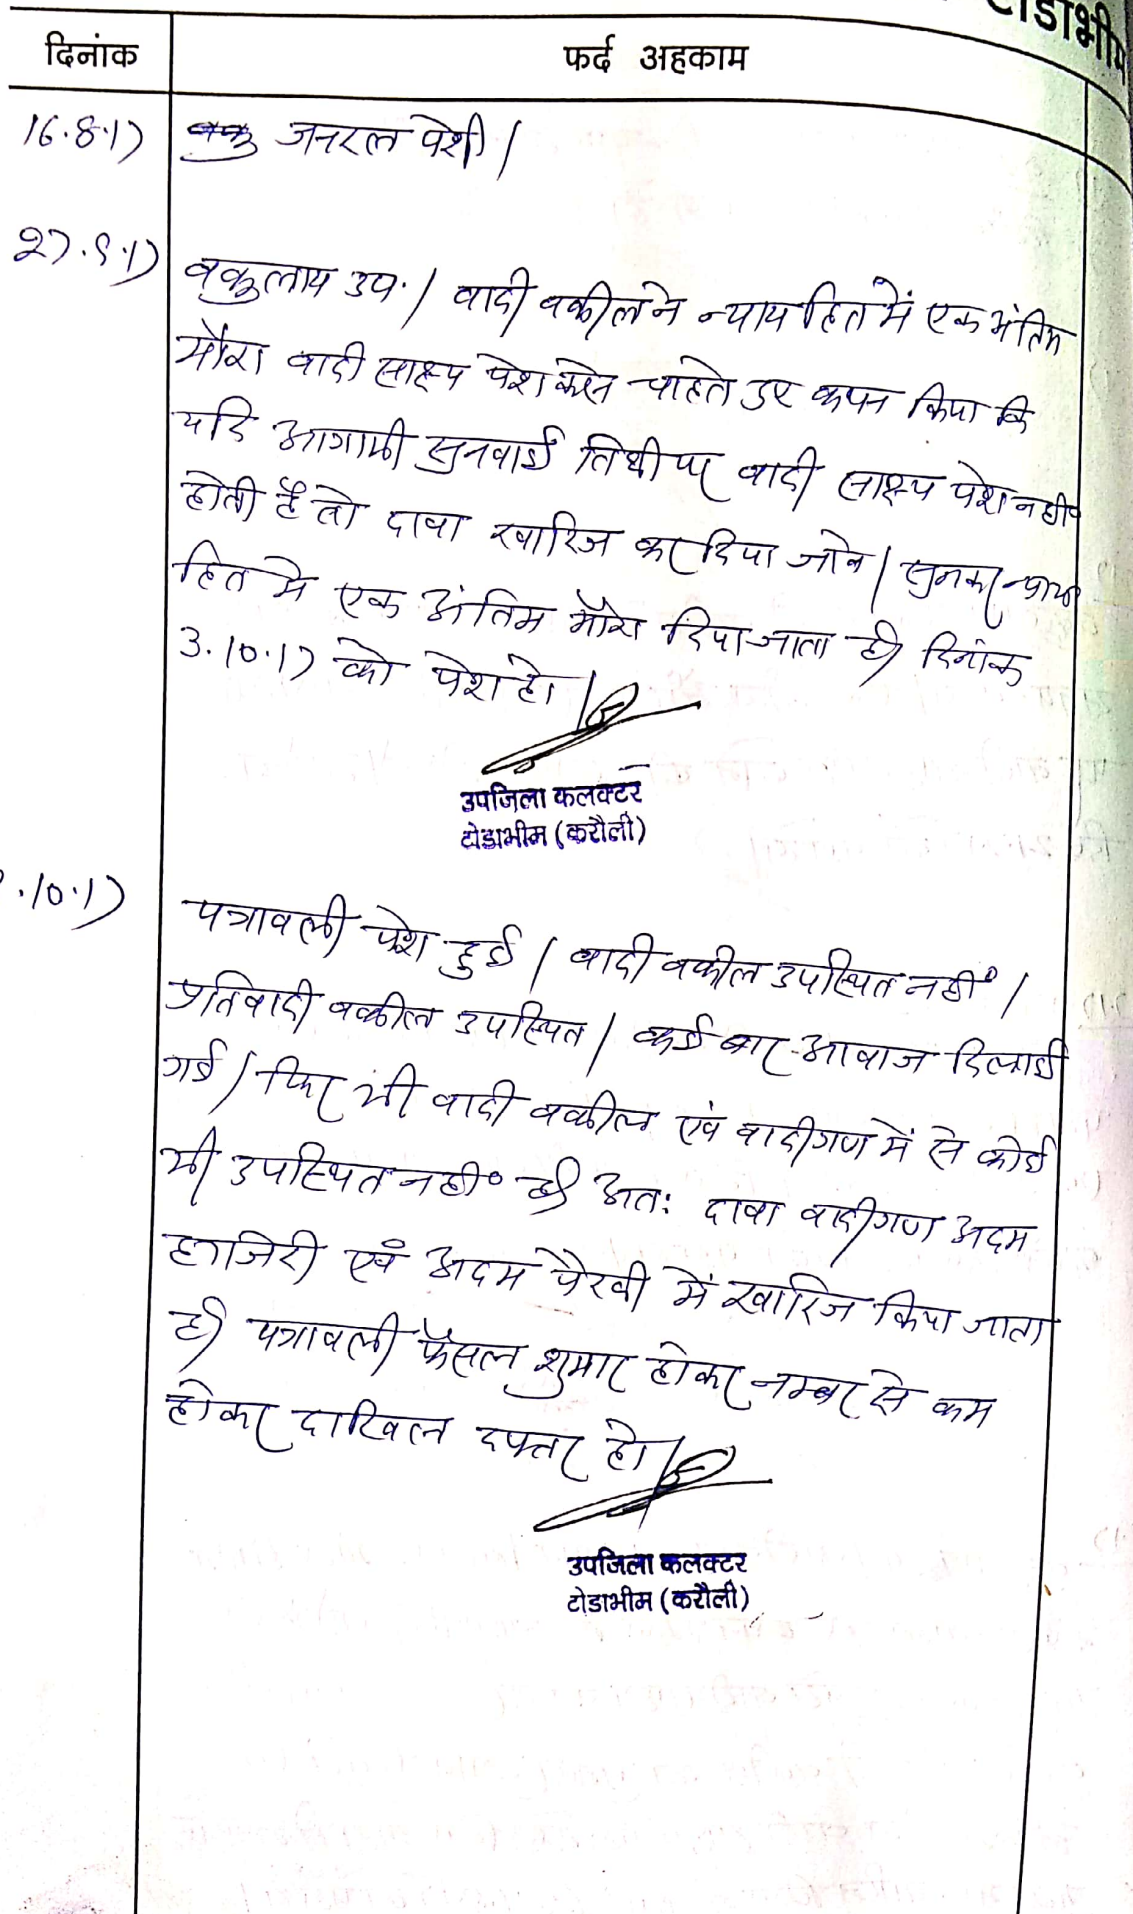 टोडाभीम
दिनांक फर्द अहकाम
16.8.17 जनरल पेशी।
27.9.17 वकुलाय उप.। वादी वकील ने न्यायहित में एक अंतिम
मौका वादी साक्ष्य पेश करने चाहते हुए कथन किया कि
यदि आगामी सुनवाई तिथी पर वादी साक्ष्य पेश नहीं
होती है तो दावा खारिज कर दिया जावे। सुनकर न्याय
हित मे एक अंतिम मौका दिया जाता है। दिनांक
3.10.17 को पेश हो।
उपजिला कलक्टर
टोडाभीम (करौली)
.10.17 पत्रावली पेश हुई। वादी वकील उपस्थित नहीं।
प्रतिवादी वकील उपस्थित। कई बार आवाज दिलाई
गई। फिर भी वादी वकील एवं वादीगण में से कोई
भी उपस्थित नहीं है। अतः दावा वादीगण अदम
हाजिरी एवं अदम पैरवी में खारिज किया जाता
है। पत्रावली फैसल शुमार होकर नम्बर से कम
होकर दाखिल दफ्तर हो।
उपजिला कलक्टर
टोडाभीम (करौली)